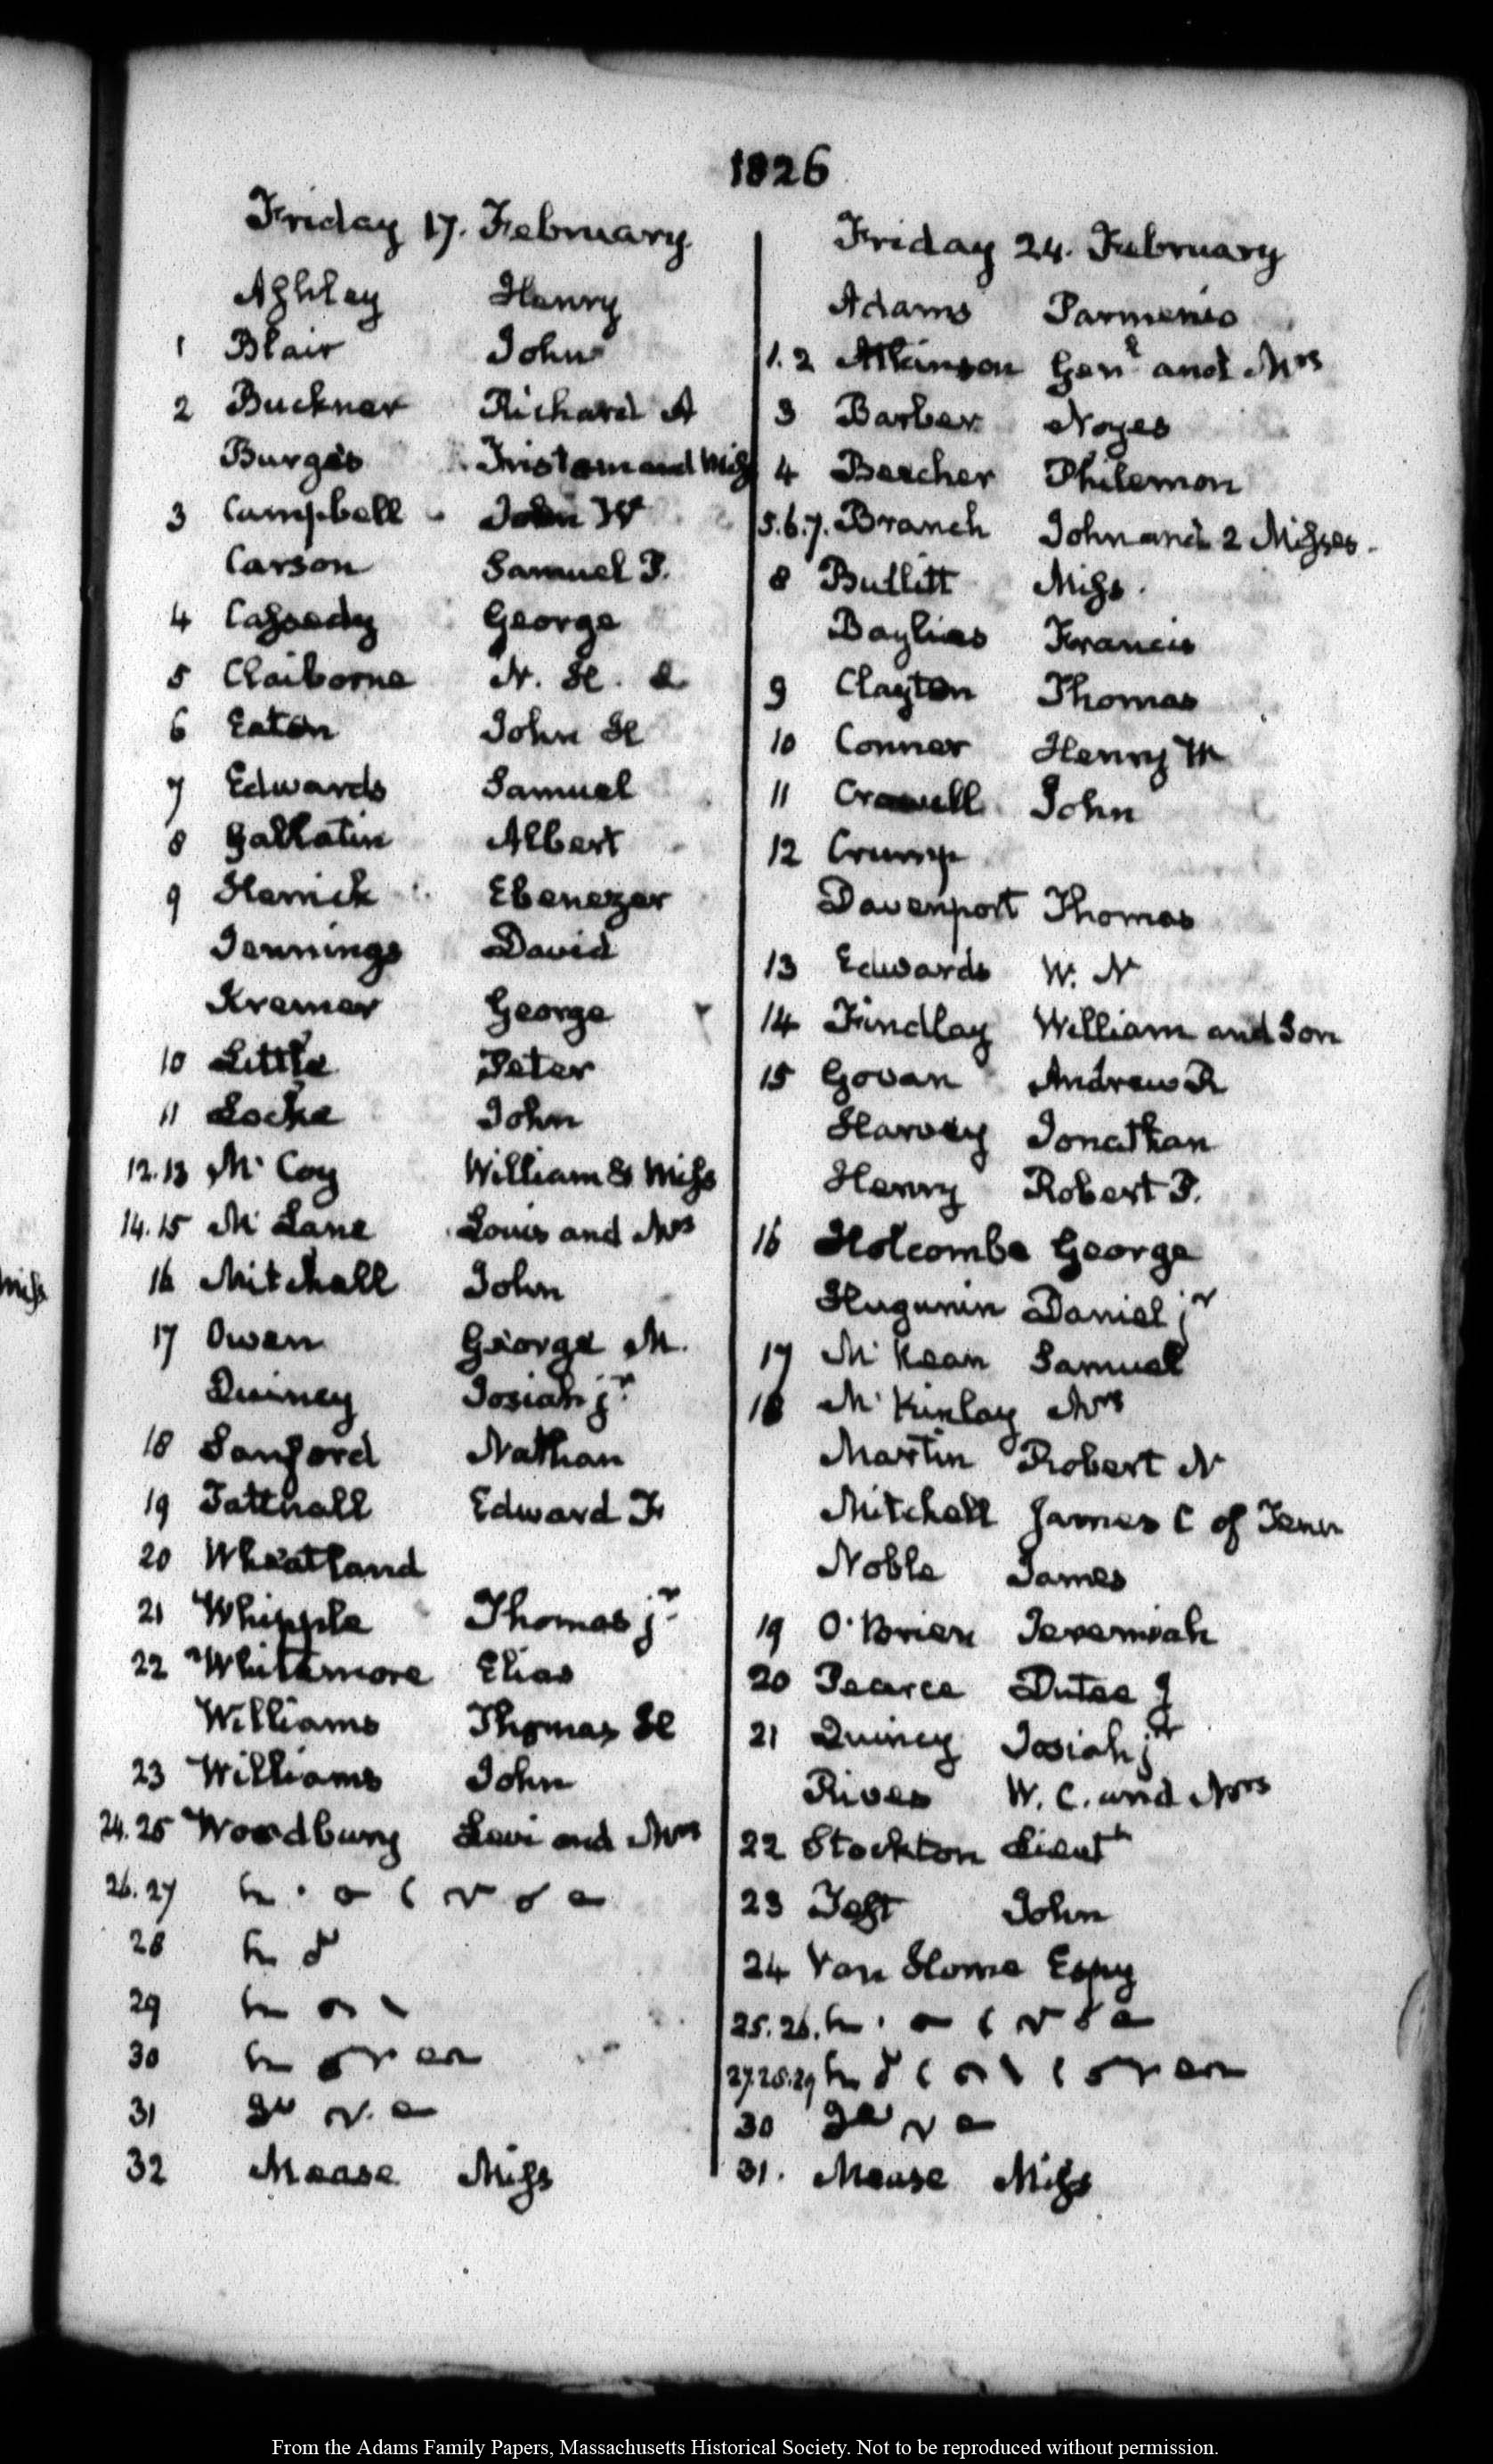 1826
Friday 17. February
Ashley Henry
1 Blair John
2 Buckner Richard A
Burges Tristam and Miss
3 Campbell John W
Carson Samuel P.
4 Cassedy George
5 Claiborne N. H.
6 Eaton John H
7 Edwards Samuel
8 Gallatin Albert
9 Herrick Ebenezer
Jennings David
Kremer George
10 Little Peter
11 Locke John
12.13 Mc Coy William & Miss
14.15 Mc Lane Louis and Mrs
16 Mitchell John
17 Owen George M.
Quincy Josiah jr
18 Sanford Nathan
19 Tattnall Edward F
20 Wheatland
21 Whipple Thomas jr
22 Whittemore Elias
Williams Thomas H
23 Williams John
24.25 Woodbury Levi and Mrs
26.27
28
29
30
31
32 Mease Miss
Friday 24. February
Adams Parmenio
1.2 Atkinson Genl and Mrs
3 Barber Noyes
4 Beecher Philemon
5.6.7. Branch John and 2 Misses.
8 Bullitt Miss.
Baylies Francis
9 Clayton Thomas
10 Conner Henry W
11 Crowell John
12 Crump
Davenport Thomas
13 Edwards W. N
14 Findlay William and Son
15 Govan Andrew R
Harvey Jonathan
Henry Robert P.
16 Holcombe George
Hugunin Daniel jr
17 Mc Kean Samuel
18 Mc Kinlay Mrs
Martin Robert N
Mitchell James C of Tenn
Noble James
19 O'Brien Jeremiah
20 Pearce Dutee J
21 Quincy Josiah jr
Rives W. C. and Mrs
22 Stockton Lieut
23 Test John
24 Van Horne Espy
25.26.
27.28.29
30
31. Mease Miss
From the Adams Family Papers, Massachusetts Historical Society. Not to be reproduced without permission.